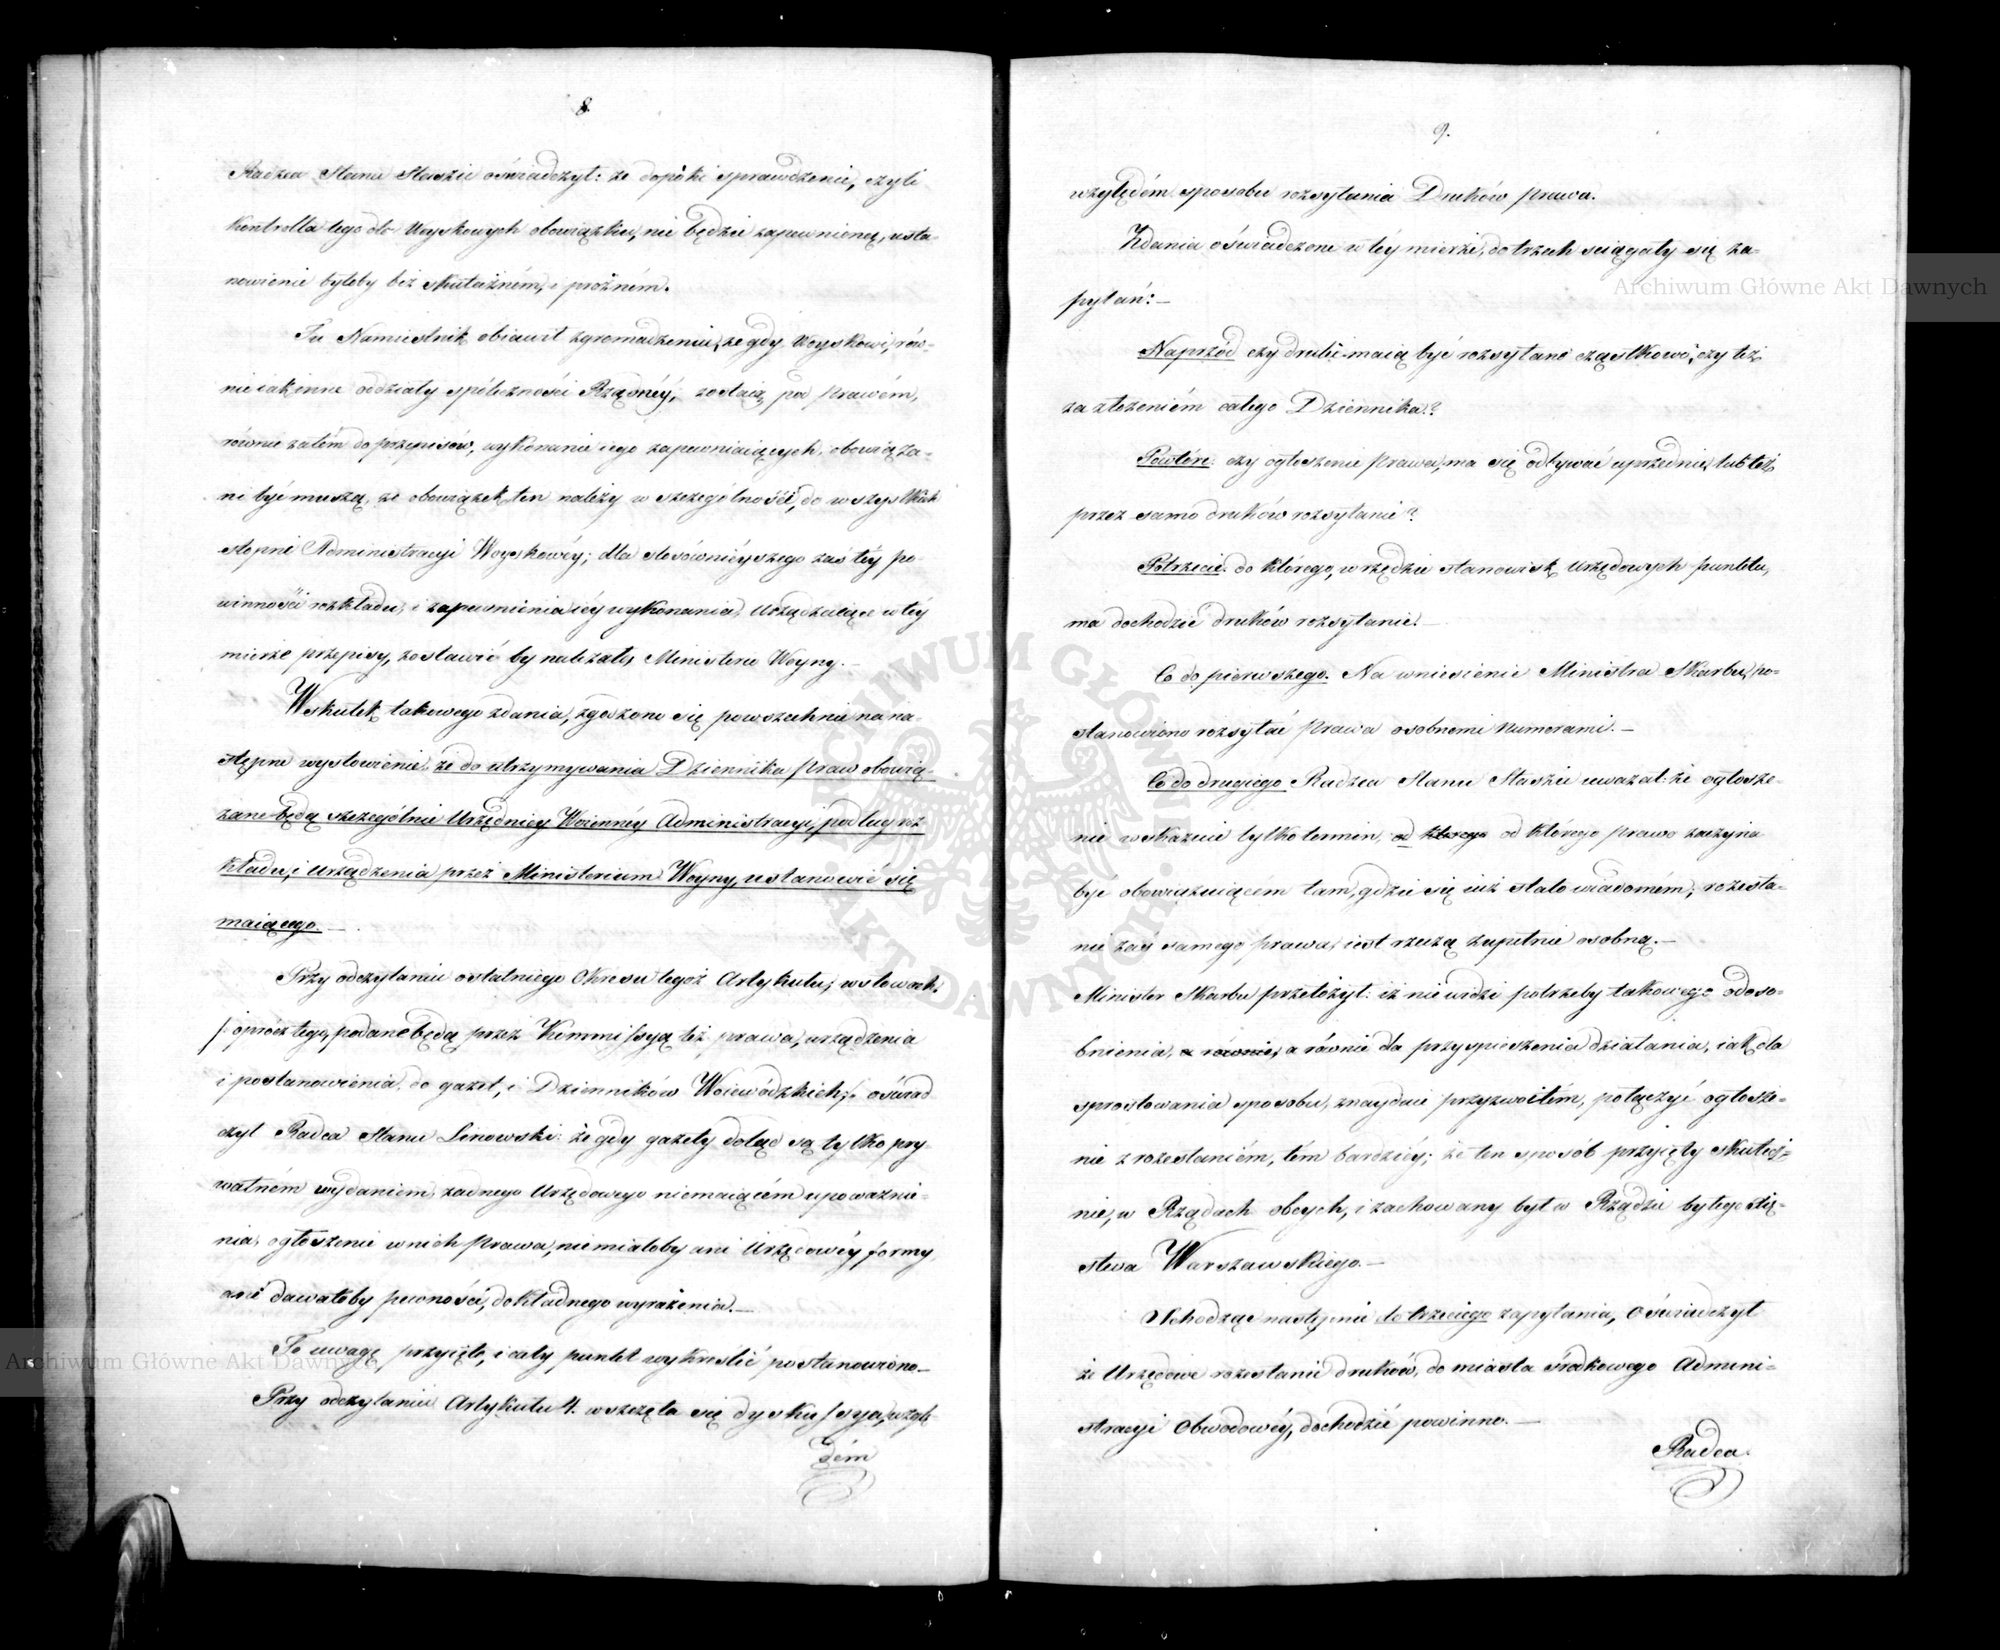 8
Radzca Stanu Staszic oświadczył: że dopóki sprawdzenie, czyli
Kontrolla tego dla Woyskowych obowiązku, nie będzie zapewnioną, usta-
nowienie byłoby bez skuteczném, i próżném.
Tu Namiestnik obiawił zgromadzeniu, że gdy Woyskowi, rów-
nie iak inne oddziały spółeczności Rządnéy, zostaią pod prawém,
równie zatém do przepisów, wykonanie iego zapewniaiących, obowiąza-
ni być muszą, że obowiązek ten należy w szczególności, do wszystkich
stopni Administracyi Woyskowéy; dla stosownieyszego zaś téy po-
winności rozkładu, i zapewnienia iéy wykonania, Urządzaiące w téy
mierze przepisy, zostawić by należało Ministeru Woyny. —
Wskutek takowego zdania, zgodzono się powszechnie na na-
stępne wysłowienie, że do utrzymywania Dziennika Praw obowią-
zane będą szczególnie Urzędnicy Woienney Administracyi, podług roz-
kładu, i urządzenia przez Ministerium Woyny, ustanowić się
maiącego. —
Przy odczytaniu ostatniego Okresu tegoż Artykułu, w słowach:
/: oprócz tego, podane będą przez Kommissyą też prawa, urządzenia
i postanowienia do gazet, i Dzienników Woiewódzkich :/ oświad-
czył Radca Stanu Linowski: że gdy gazety dotąd są tylko pry-
watném wydaniem, żadnego Urzędowego niemaiącém upoważnie-
nia, ogłoszenie w nich Prawa, nie miałoby ani Urzędowéy formy
ani dawałoby pewności, dokładnego wyrażenia. —
Tę uwagę przyięto, i cały punkt wykreślić postanowiono —
Przy odczytaniu Artykułu 4. wszczęła się dyskussya, wzglę-
dém
9.
względém sposobu rozsyłania Druków prawa.
Zdania oświadczone w téy mierze, do trzech ściągały się za-
pytań: —
Naprzód czy druki maią być rozsyłane cząstkowo, czy też
za złożeniém całego Dziennika?
Powtóre: czy ogłoszenie Prawa, ma się odbywać uprzednie, lub też
przez samo druków rozsyłanie?
Potrzecie: do którego, w rzędzie stanowisk Urzędowych punktu,
ma dochodzić druków rozsyłanie. —
Co do pierwszego. Na wniesienie Ministra Skarbu, po-
stanowiono rozsyłać Prawa osobnemi Numerami. —
Co do drugiego Radzca Stanu Staszic uważał: że ogłosze-
nie wskazuie tylko termin, od którego od którego prawo zaczyna
być obowiązuiącém tam, gdzie się iuż stało wiadomém, rozesła-
nie zaś samego prawa, iest rzeczą zupełnie osobną. —
Minister Skarbu przełożył: iż nie widzi potrzeby takowego odoso-
bnienia, a równie, a równie dla przyspieszenia działania, iak dla
sprostowania sposobu, znayduie przyzwoitém, połączyć ogłosze-
nie z rozesłaniém, tém bardziéy; że ten sposób przyięty skutecz-
nie, w Rządach obcych, i zachowany był w Rządzie byłego Xię-
stwa Warszawskiego. —
Wchodząc następnie do trzeciego zapytania, Oświadczył
że Urzędowe rozesłanie druków, do miasta środkowego Admini-
stracyi Obwodowéy, dochodzić powinno. —
Radca
Archiwum Główne Akt Dawnych
Archiwum Główne Akt Dawnych
ARCHIWUM GŁÓWNE
AKT DAWNYCH